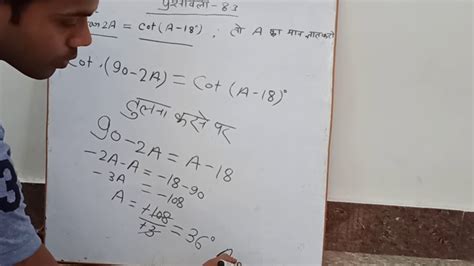 प्रश्नावली - 8.3
tan 2A = Cot (A-18°) , तो A का मान ज्ञात करो
Cot (90-2A) = Cot (A-18)°
तुलना करने पर
90-2A = A-18
-2A-A = -18-90
-3A = -108
A = +108/+3 = 36°